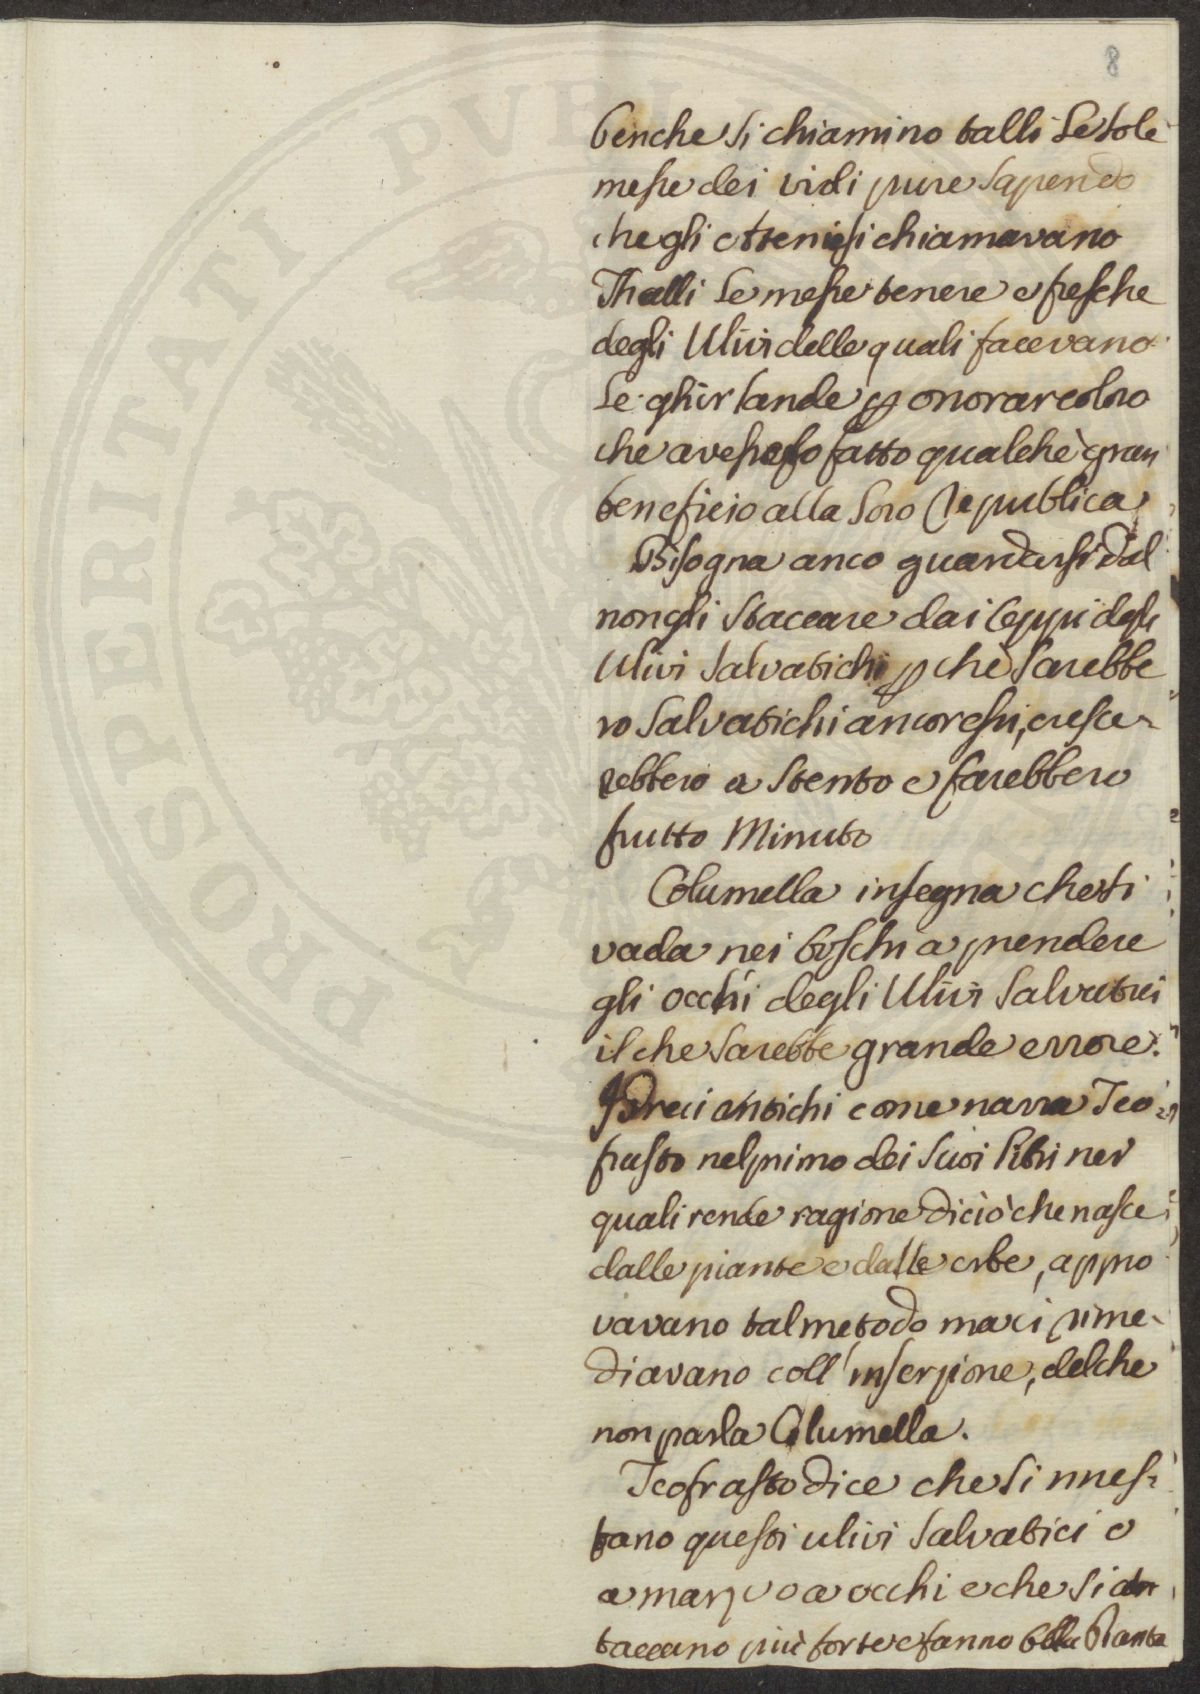 8
benche si chiamino talli le sole
messe dei vidi pure sapendo
che gli Ateniesi chiamavano
Thalli le messe tenere e fresche
degli Ulivi delle quali facevano
le ghirlande p onorar coloro
che avessero fatto qualche gran
beneficio alla loro Republica
Bisogna anco guardarsi dal
non gli staccare dai ceppi degli
Ulivi salvatichi p che sarebbe
ro salvatichi ancor essi, cresce-
rebbero a stento e farebbero
frutto minuto
Columella insegna che si
vada nei boschi a prendere
gli occhi degli Ulivi salvatici
il che sarebbe grande errore.
Greci antichi come narra Teo-
frasto nel primo dei suoi libri nei
quali rende ragione di ciò che nasce
dalle piante e dalle erbe, appro
vavano tal metodo ma ci rime-
diavano coll'inserzione, del che
non parla Columella.
Teofrasto dice che si nnes-
tano questi ulivi salvatici o
a marzo o a occhi e che si at
taccano più forte e fanno bella Pianta
PROSPERITATI PVBLI